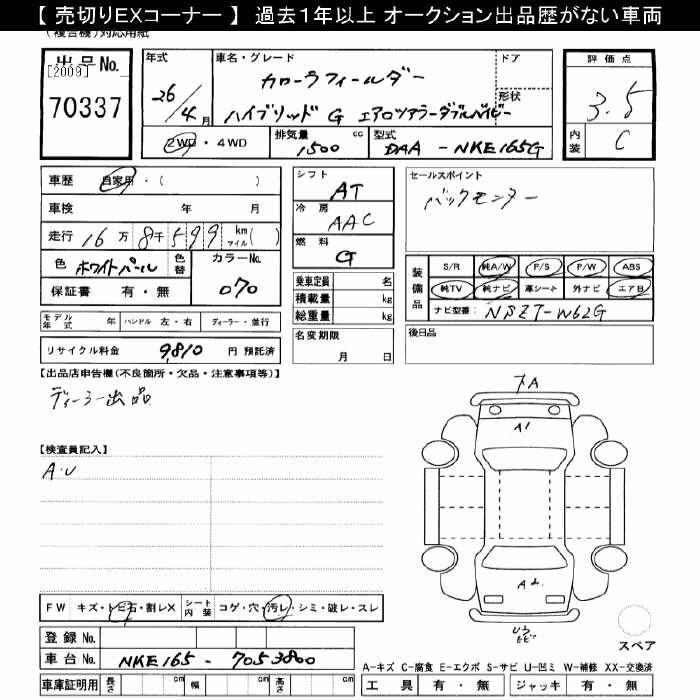 【 売切りEXコーナー 】 過去1年以上 オークション出品歴がない車両
(複合機)対応用紙
出品No.
[2009]
70337
年式
26/4月
車名・グレード
カローラフィールダー
ハイブリッド G エアロツアラーダブルバイビー
ドア
形状
2WD・4WD
排気量 1500 cc
型式 DAA - NKE165G
評価点
3.5
内装 C
車歴 自家用・( )
車検 年 月
走行 16万 8千 599 km マイル( )
色 ホワイトパール 色替
カラーNo. 070
保証書 有・無
モデル年式 年 ハンドル 左・右 ディーラー・並行
リサイクル料金 9,810 円 預託済
シフト AT
冷房 AAC
燃料 G
乗車定員 名
積載量 kg
総重量 kg
名変期限
月 日
セールスポイント
バックモニター
装備品
S/R 純A/W P/S P/W ABS
純TV 純ナビ 革シート 外ナビ エアB
ナビ型番: NSZT-W62G
後日品
【出品店申告欄(不良箇所・欠品・注意事項等)】
ディーラー出品
【検査員記入】
A・U
A
A1
A2
FW キズ・トビ石・割レX シート内装 コゲ・穴・汚レ・シミ・破レ・スレ
登録 No.
車台 No. NKE165 - 7053800
車庫証明用 長さ cm 幅 cm 高さ cm
スペア
A-キズ C-腐食 E-エクボ S-サビ U-凹ミ W-補修 XX-交換済
工具 有・無 ジャッキ 有・無